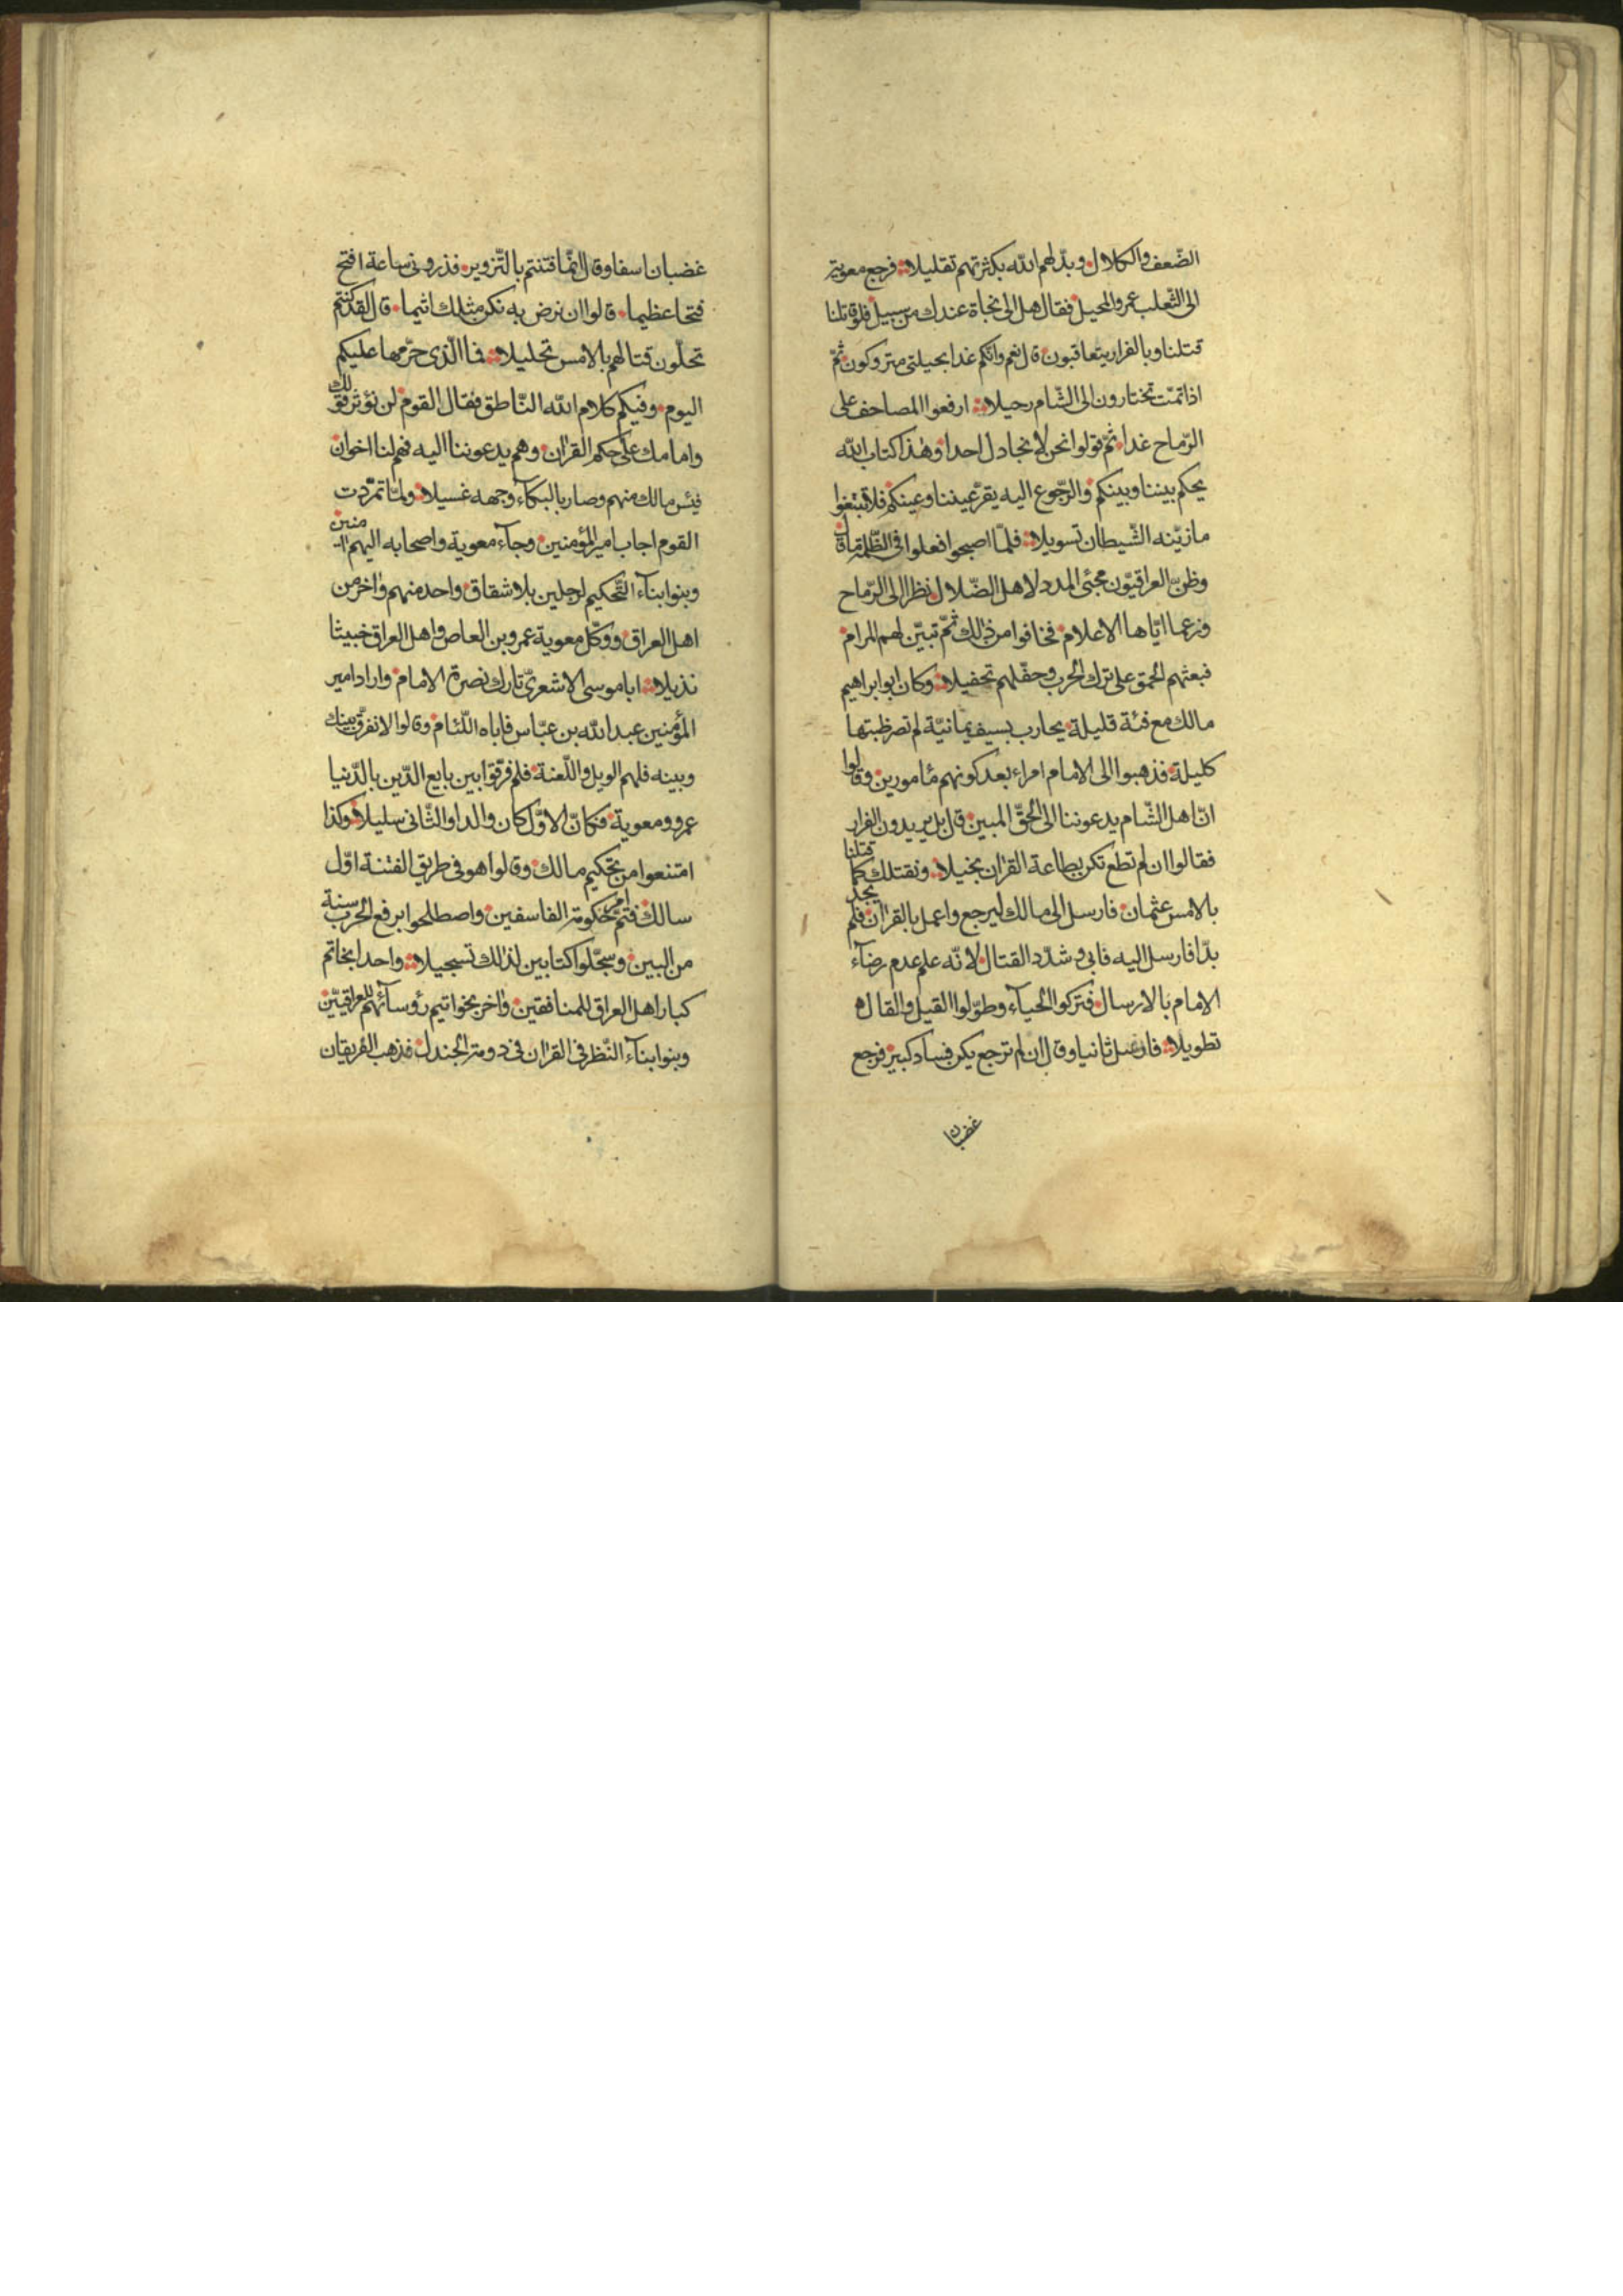 الضّعف والكلال وبدّلهم الله بكثرتهم تقليلا فرجع معوية
الى الثّعلب عمرو المحيل فقال هل الى نجاة عندك من سبيل فلو قاتلنا
قتلنا وبالفرار يتعاقبون قال نعم وانّكم غدا بحيلتى متروكون ثمّ
اذا تمّت تختارون الى الشّام رحيلا ارفعوا المصاحف على
الرّماح غدا ثمّ قولوا نحن لا نجادل احدا وهذا كتاب الله
يحكم بيننا وبينكم والرّجوع اليه يقرّ عيننا وعينكم فلا تبتغوا
ما زيّنه الشّيطان تسويلا فلمّا اصبحوا فعلوا فى الظّلمة ما قال
وظنّ العراقيّون مجئ المدد لاهل الضّلال نظرا الى الرّماح
وزعما ايّاها الاعلام فخافوا من ذلك ثمّ تبيّن لهم المرام
فبعثهم الحمق على ترك الحرب وحفّلهم تحفيلا وكان ابو ابراهيم
مالك مع فئة قليلة يحارب بسيف يمانيّة لم تصر ظبتها
كليلة فذهبوا الى الامام امراء بعد كونهم مأمورين وقالوا
انّ اهل الشّام يدعوننا الى الحقّ المبين قال بل يريدون الفرار
فقالوا ان لم تطع تكن بطاعة القران بخيلا ونقتلك كما قتلنا
بالامس عثمان فارسل الى مالك ليرجع واعمل بالقران فلم يجد
بدّا فارسل اليه فابى وشدّد القتال لانّه علم عدم رضآء
الامام بالارسال فتركوا الحيآء وطوّلوا القيل والقال
تطويلا فارسل ثانيا وقال ان لم ترجع يكن فساد كبير فرجع
غضبان
غضبان اسفا وقال انّما فتنتم بالتّزوير فذرونى ساعة افتح
فتحا عظيما قالوا ان نرض به نكن مثلك اثيما قال لقد كنتم
تحلّون قتالهم بالامس تحليلا فما الّذى حرّمها عليكم
اليوم وفيكم كلام الله النّاطق فقال القوم لن نؤثر قولك
وامامك على حكم القران وهم يدعوننا اليه فهم لنا اخوان
فيئس مالك منهم وصار بالبكآء وجهه غسيلا ولمّا تمرّدت
القوم اجاب امير المؤمنين وجآء معوية واصحابه اليهم امنين
وبنوا بنآء التّحكيم لرجلين بلا شقاق واحد منهم واخر من
اهل العراق ووكّل معوية عمرو بن العاص واهل العراق خبيثا
نذيلا ابا موسى الاشعرىّ تارك نصرة الامام واراد امير
المؤمنين عبد الله بن عبّاس فاباه اللّئام وقالوا لا نفرّق بينك
وبينه فلهم الويل واللّعنة فلم فرّقوا بين بايع الدّين بالدّنيا
عمرو ومعوية فكانّ الاوّل كان والدا والثّانى سليلا وكذا
امتنعوا من تحكيم مالك وقالوا هو فى طريق الفتنة اوّل
سالك فتمّ امر حكومة الفاسقين واصطلحوا برفع الحرب سنة
من البين وسجّلوا كتابين لذلك تسجيلا واحدا بخاتم
كبار اهل العراق للمنافقين واخر بخواتيم رؤسآئهم للعراقيّين
وبنوا بنآء النّظر فى القران فى دومة الجندل فذهب الفريقان